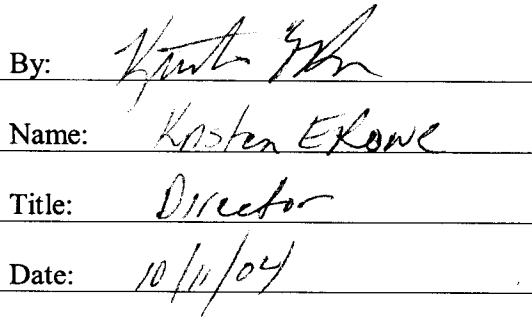 By:
Name: Kristen E Rowe
Title: Director
Date: 10/11/04